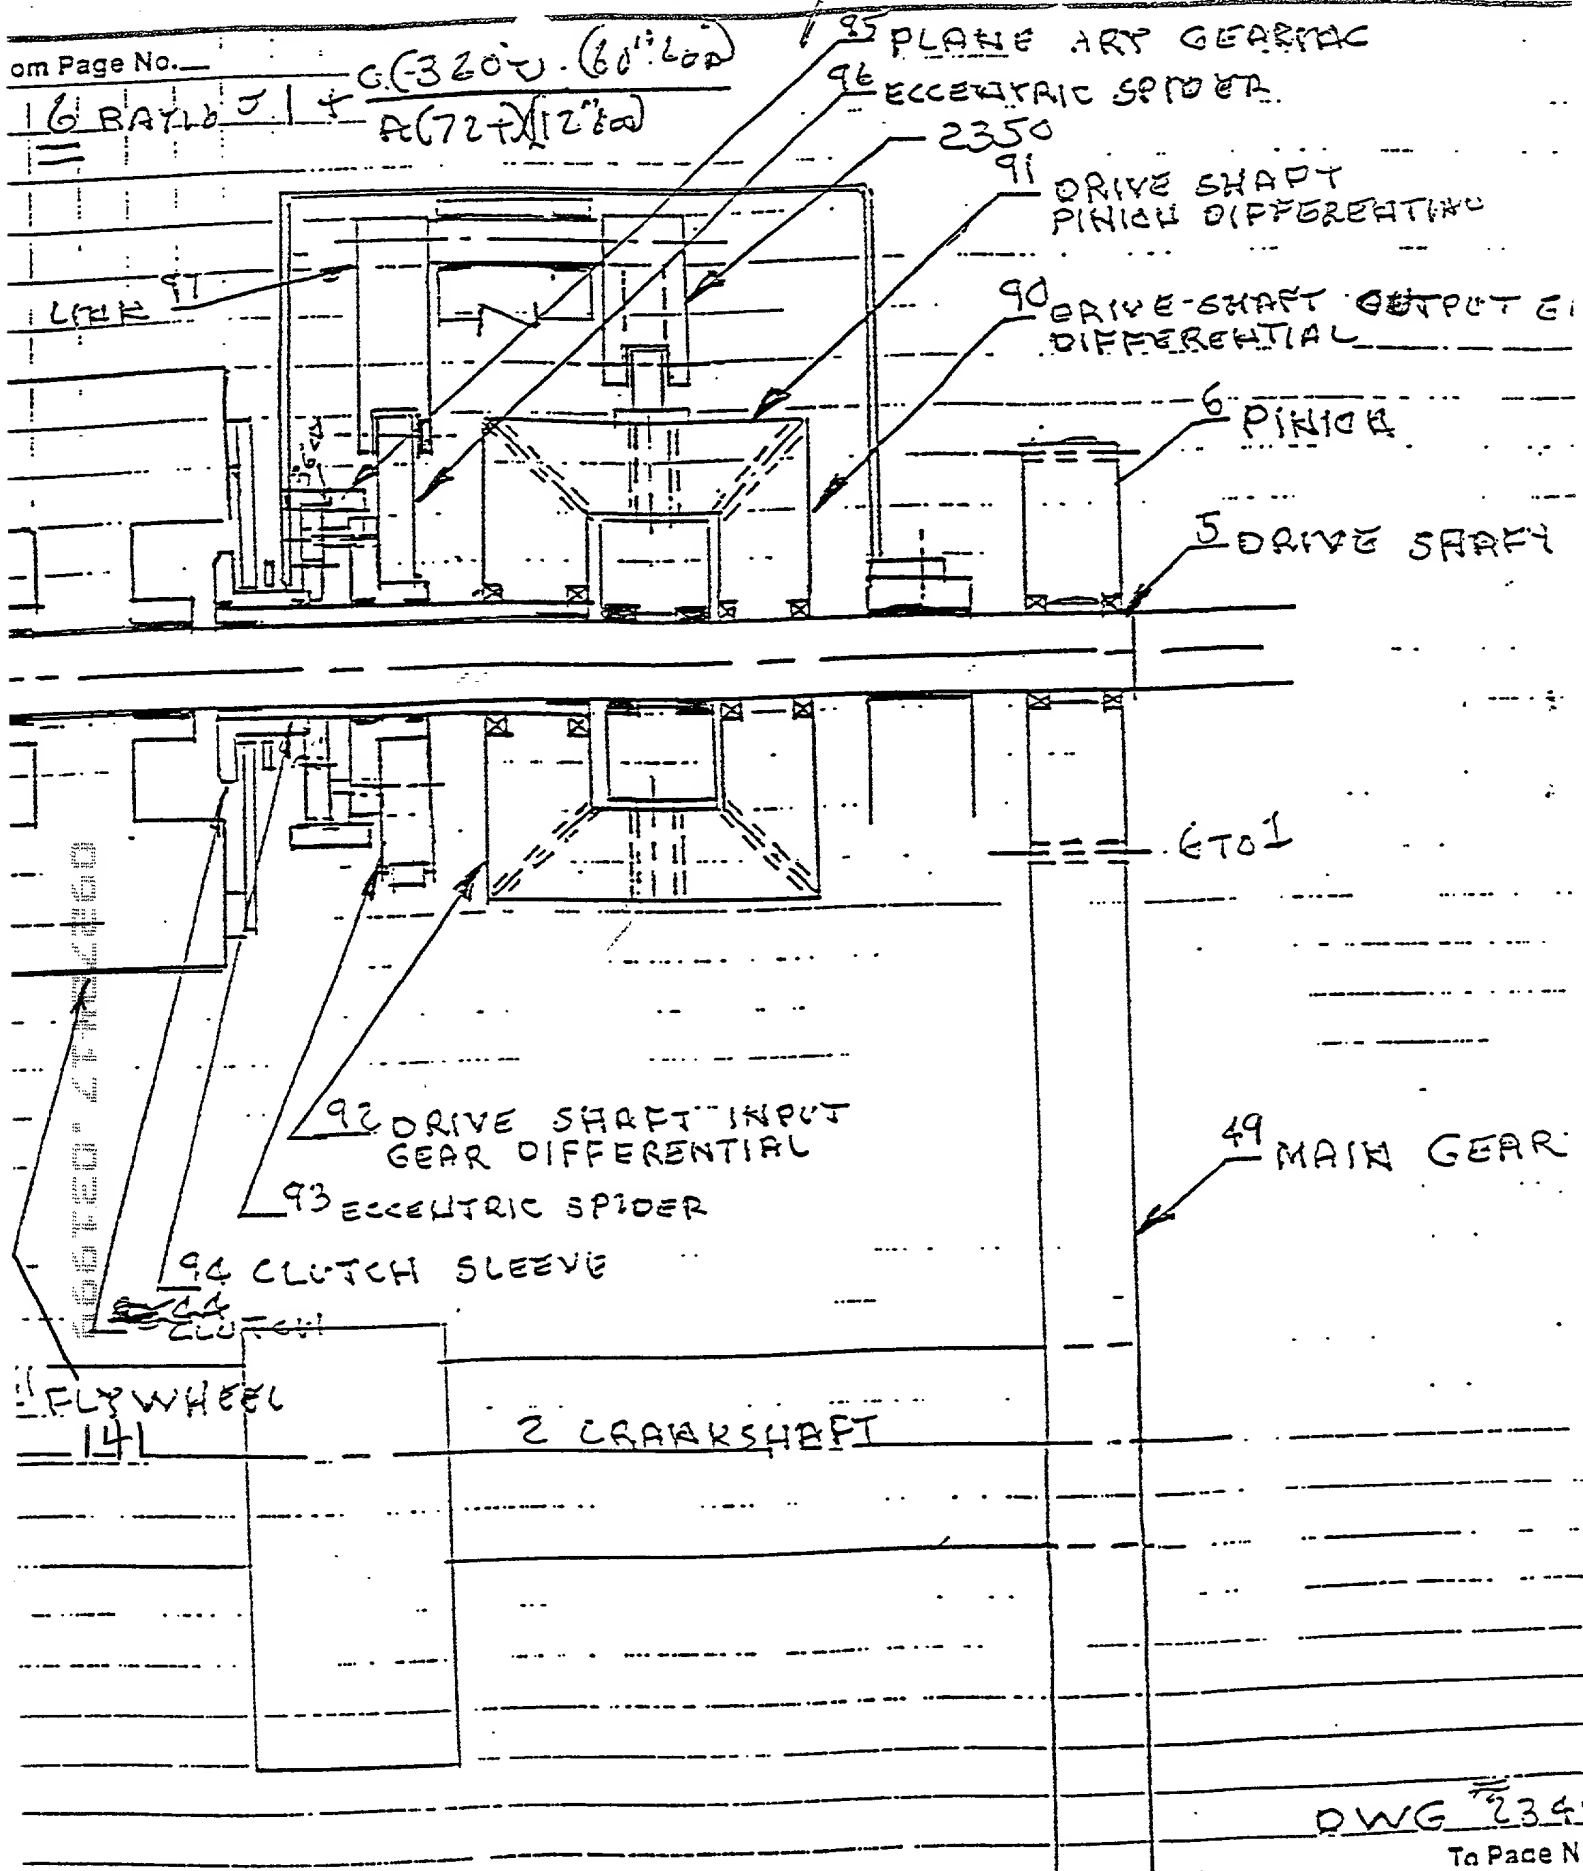 om Page No.
C (-320T) . (60" LOD)
16 BAYLD 5 1 +
A (72T) (12" LOD)
95 PLANE ARY GEAR
96 ECCENTRIC SPIDER
2350
91 DRIVE SHAFT
PINION DIFFERENTIAL
LINK 97
90 DRIVE-SHAFT OUTPUT
DIFFERENTIAL
6 PINION
5 DRIVE SHAFT
6 TO 1
92 DRIVE SHAFT INPUT
GEAR DIFFERENTIAL
49 MAIN GEAR
93 ECCENTRIC SPIDER
94 CLUTCH SLEEVE
44
CLUTCH
FLYWHEEL
141
2 CRANKSHAFT
DWG 234
To Page N